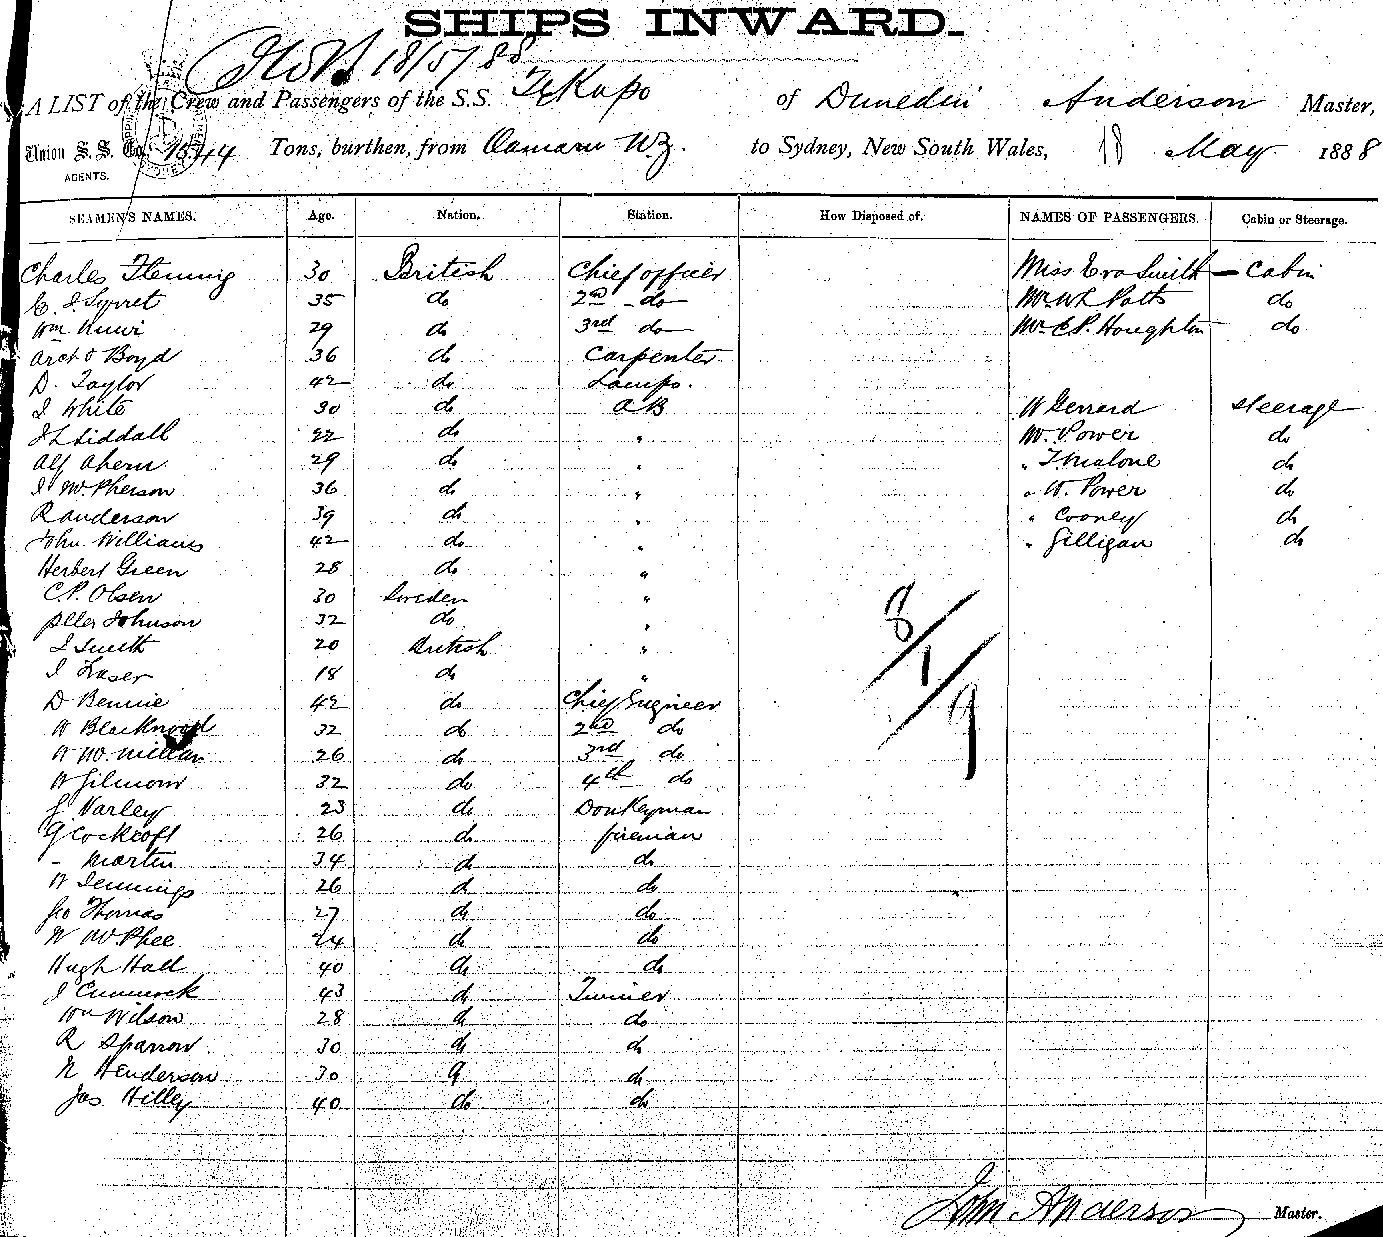 SHIPS INWARD.
18/5/88
A LIST of the Crew and Passengers of the S.S. TeKapo of Dunedin Anderson Master,
Union S. S. Co. 1544 Tons, burthen, from Oamaru N.Z. to Sydney, New South Wales, 18 May 1888
AGENTS.
SEAMEN'S NAMES. Age. Nation. Station. How Disposed of. NAMES OF PASSENGERS. Cabin or Steerage.
Charles Fleming 30 British Chief officer Miss Eva Smith — Cabin
E. J. Syrret 35 do 2nd do Mr W L Potts do
Wm Muir 29 do 3rd do Mr E P. Houghton do
Archd Boyd 36 do Carpenter
D. Taylor 42 do Lamps.
J White 30 do AB W Gerrard Steerage
J L Siddall 22 do " M. Power do
Alf Ahern 29 do " " T. Malone do
J McPherson 36 do " " W. Power do
R Anderson 39 do " " Cooney do
John Williams 42 do " " Gilligan do
Herbert Green 28 do "
C. P. Olsen 30 Sweden "
Peter Johnson 32 do "
J Smith 20 British "
J Fraser 18 do "
D Bennie 42 do Chief Engineer
W Blackwood 32 do 2nd do
W McMillan 26 do 3rd do
W Gilmour 32 do 4th do
J Varley 23 do Donkeyman
G Cockroft 26 do fireman
- Martin 34 do do
W Jennings 26 do do
Geo Thomas 27 do do
N McPhee 24 do do
Hugh Hall 40 do do
J Cummock 43 do Trimmer
Wm Wilson 28 do do
R Sparrow 30 do do
N Henderson 30 do do
Jas Hilley 40 do do
8/1/9
John Anderson Master.